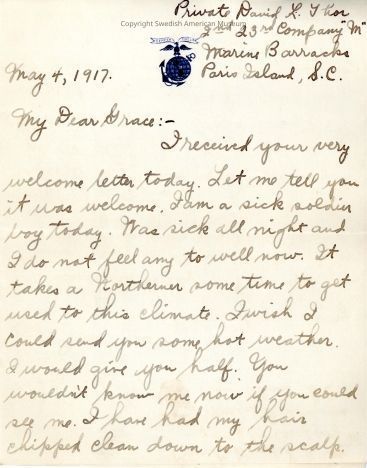 Copyright Swedish American Museum
Private David L. Thor
2nd 23rd Company "M"
Marine Barracks
May 4, 1917. Paris Island, S.C.
My Dear Grace:-
I received your very
welcome letter today. Let me tell you
it was welcome. I am a sick soldier
boy today. Was sick all night and
I do not feel any to well now. It
takes a Northerner some time to get
used to this climate. I wish I
could send you some hot weather.
I would give you half. You
wouldn't know me now if you could
see me. I have had my hair
chipped clean down to the scalp.